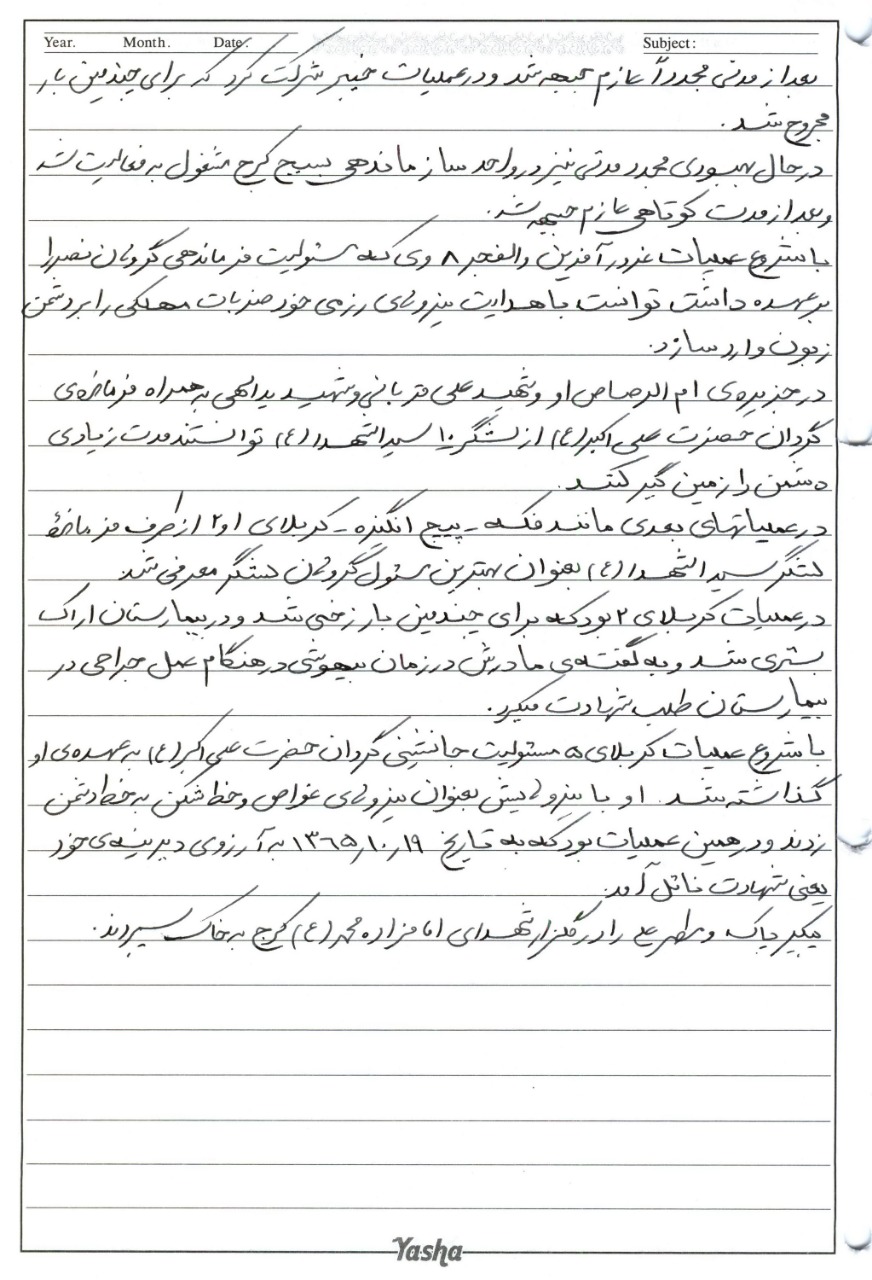 Year. Month. Date: Subject:
بعد از مدتی مجدداً عازم جبهه شد و در عملیات خیبر شرکت کرد که برای چندمین بار
مجروح شد.
در حال بهبودی مجدد مدتی نیز در واحد سازماندهی بسیج کرج مشغول به فعالیت شد
و بعد از مدت کوتاهی عازم جبهه شد.
با شروع عملیات غرورآفرین والفجر ۸ وی که مسئولیت فرماندهی گروهان نصر را
بر عهده داشت توانست با هدایت نیروهای رزمی خود ضربات مهلکی را بر دشمن
زبون وارد سازد.
در جزیره‌ی ام الرصاص او و شهید علی قربانی و شهید یدالهی به همراه فرمانده‌ی
گردان حضرت علی اکبر(ع) از لشگر ۱۰ سیدالشهدا(ع) توانستند مدت زیادی
دشمن را زمین گیر کنند.
در عملیاتهای بعدی مانند فکه - پیچ انگیزه - کربلای ۱و۲ از طرف فرمانده
لشگر سیدالشهدا(ع) بعنوان بهترین مسئول گروهان لشگر معرفی شد.
در عملیات کربلای ۲ بود که برای چندمین بار زخمی شد و در بیمارستان اراک
بستری شد و به گفته‌ی مادرش در زمان بیهوشی در هنگام عمل جراحی در
بیمارستان طلب شهادت میکرد.
با شروع عملیات کربلای ۵ مسئولیت جانشینی گردان حضرت علی اکبر(ع) به عهده‌ی او
گذاشته شد. او با نیروهایش بعنوان نیروهای غواص و خط شکن به خط دشمن
زدند و در همین عملیات بود که به تاریخ ۱۳۶۵,۱۰,۱۹ به آرزوی دیرینه‌ی خود
یعنی شهادت نائل آمد.
پیکر پاک و مطهر علی را در گلزار شهدای امامزاده محمد(ع) کرج به خاک سپردند.
Yasha